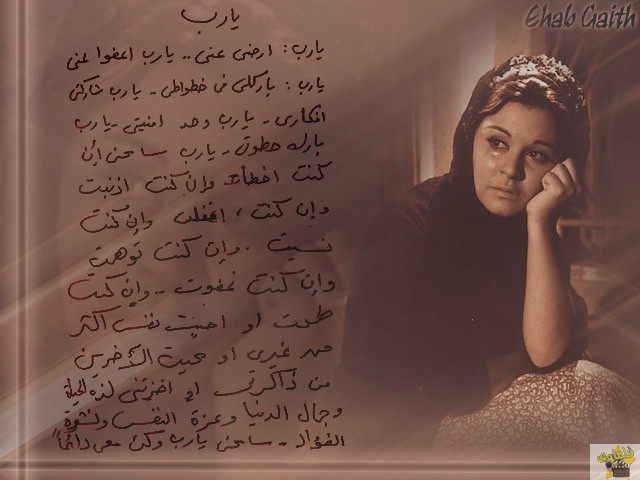 Ehab Gaith
يارب
يارب : ارضى عنى .. يارب اعفوا عنى
يارب : باركلى فى خطواطى - يارب شاركنى
افكارى - يارب وحد امنيتى - يارب
بارك خطوتى - يارب سامحنى إن
كنت اخطأت وإن كنت اذنبت
وإن كنت ، اغفلت وإن كنت
نسيت . وإن كنت توهمت
وإن كنت غفوت .. وإن كنت
ظلمت او احببت نفسى اكثر
من غيرى او محيت الأخرين
من ذاكرتى او اخذتنى لذة الحياة
وجمال الدنيا وعزة النفس ونشوة
الفؤاد - سامحنى يارب وكن معى دائماً